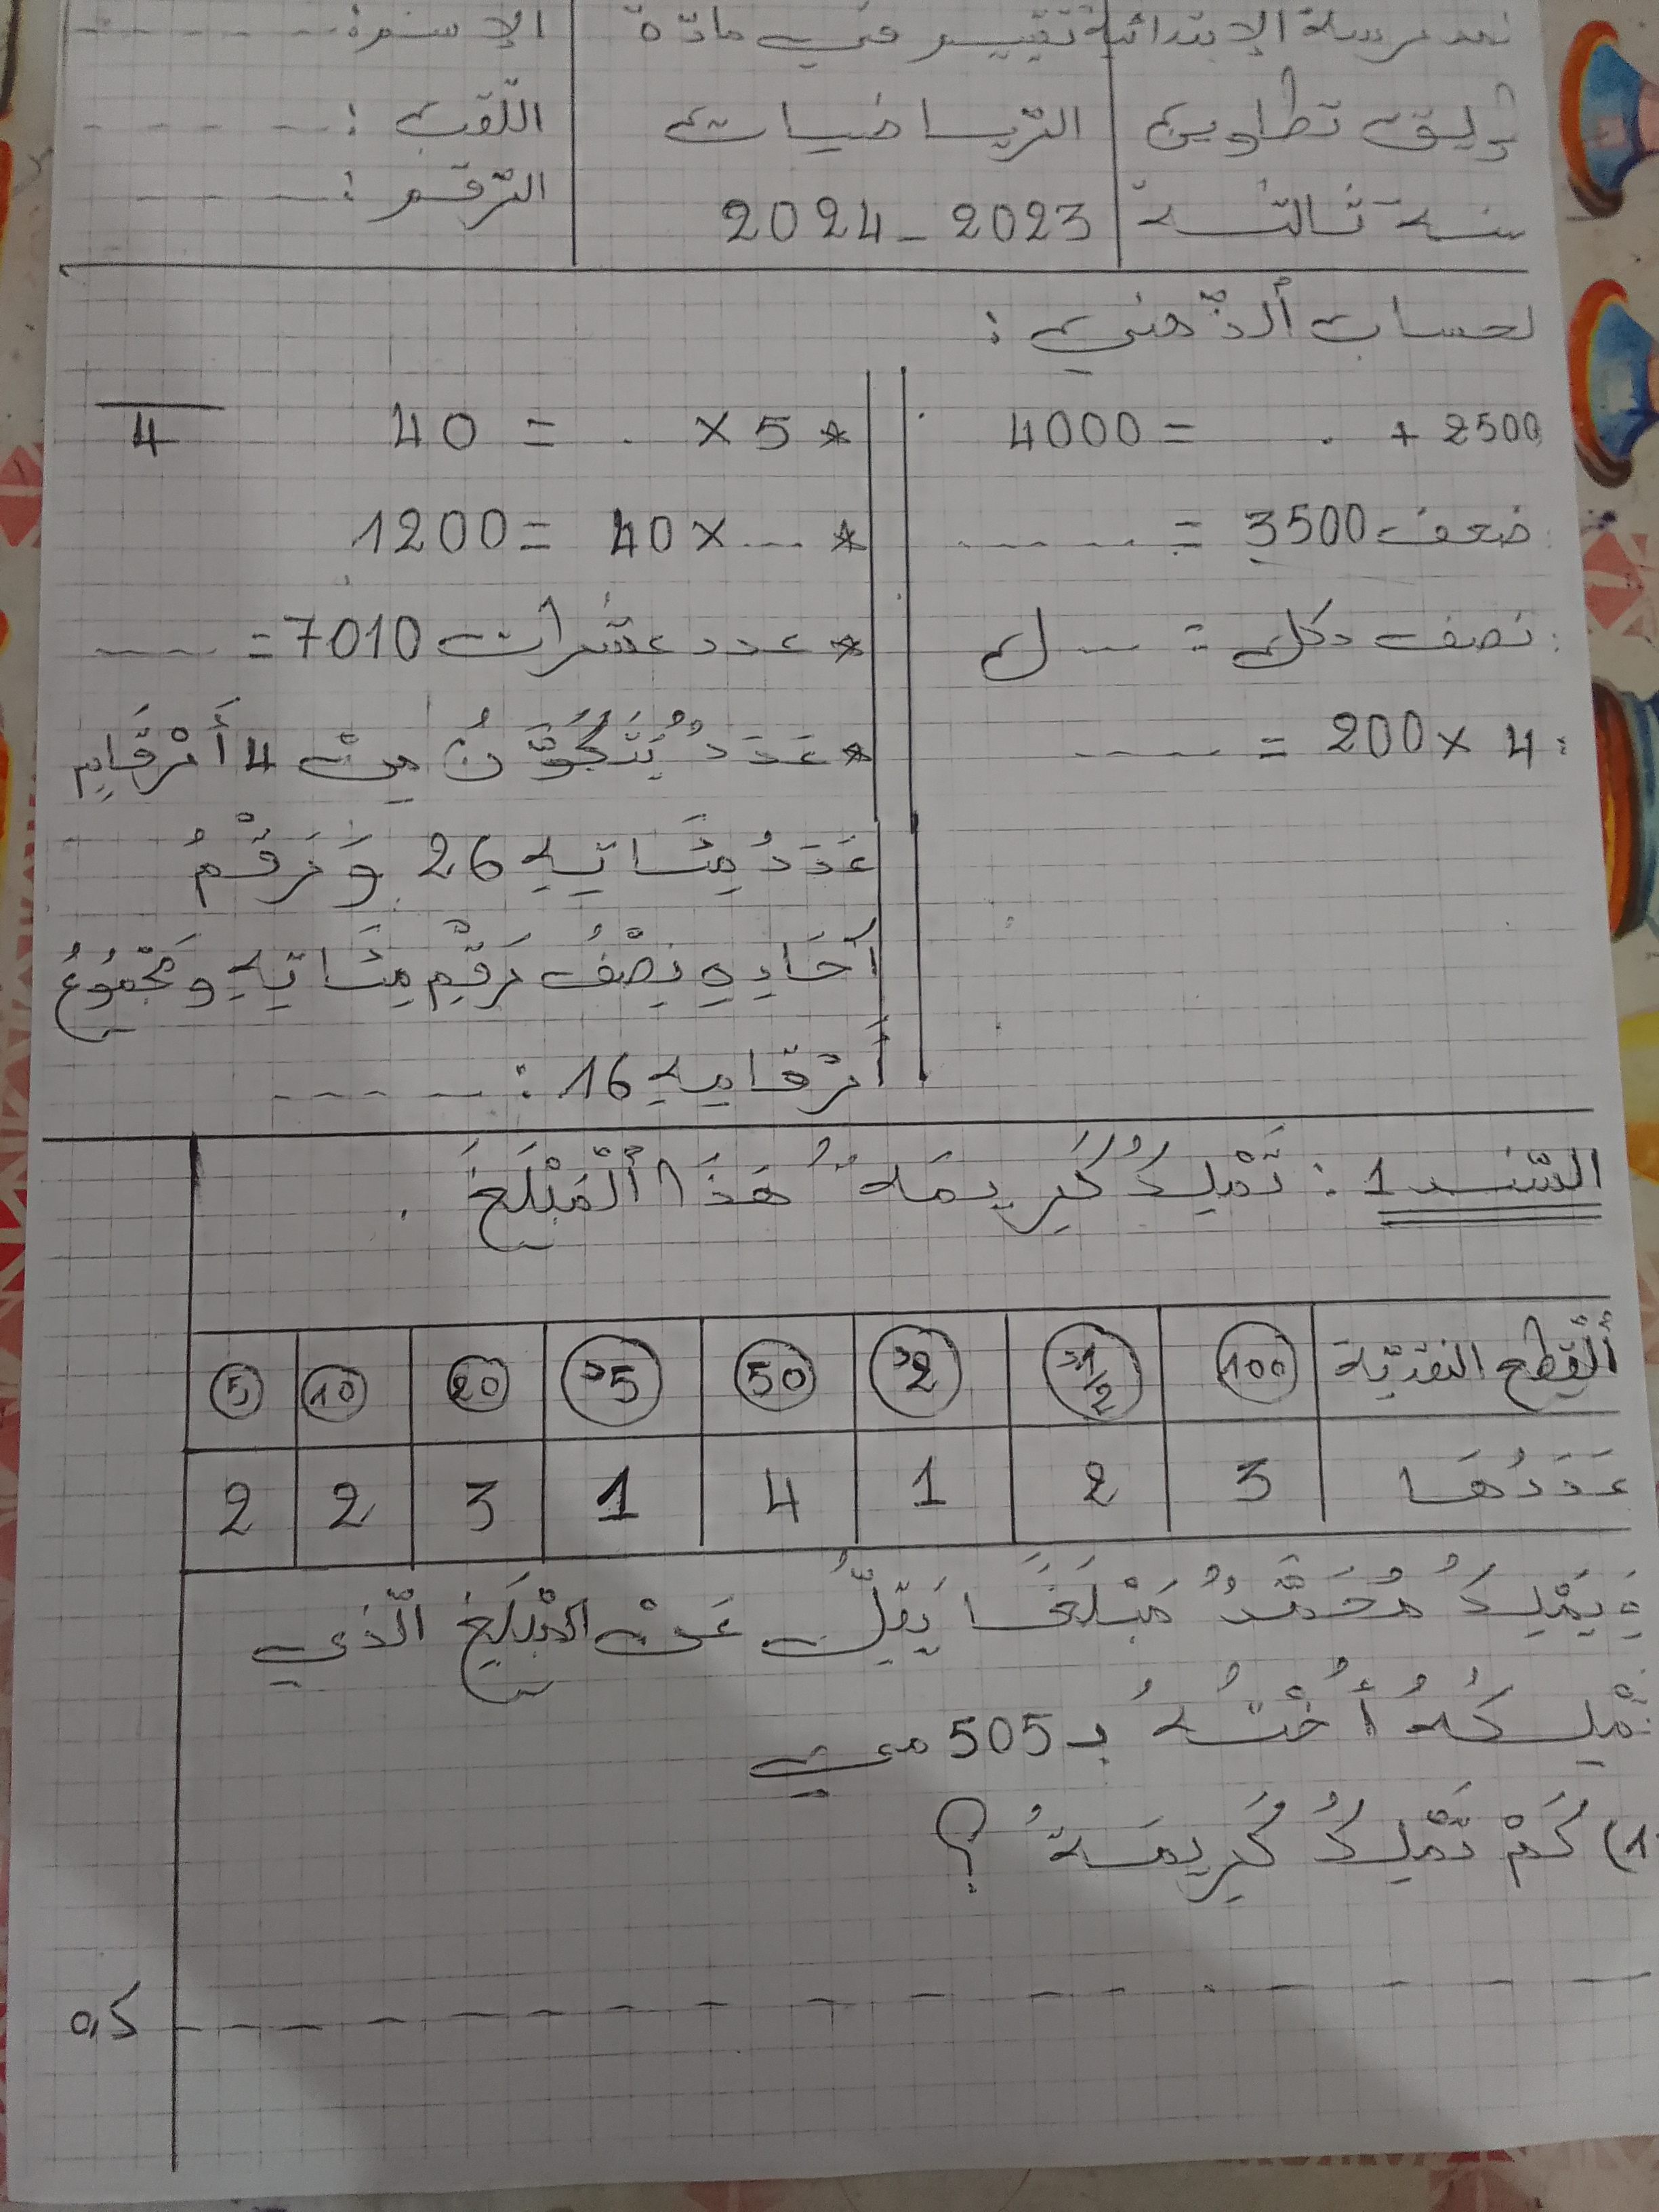 مدرسة الإبتدائية تقييم في مادّة الإسم: ------
تطاوين الرّياضيات اللّقب: -----
سنة ثالثة 2023 - 2024 الرّقم: -----
لحساب ألذّهني:
2500 + . = 4000
ضعف 3500 = ------
نصف دكل = .... ل
4 × 200 = -----
* 5 × . = 40
4
* .... × 40 = 1200
* عدد عشرات 7010 = ----
* عَدَدٌ يَتَكَوَّنُ مِنْ 4 أَرْقَامِ
عَدَدُ مِئَاتِهِ 26 وَ رَقْمُ
آحَادِهِ نِصْفُ رَقْمِ مِئَاتِهِ و مَجْمُوعُ
أَرْقَامِهِ 16: -----
السّند 1: تَمْلِكُ كَرِيمَةُ هَذَا ألْمَبْلَغَ.
ألْقِطع النقديّة 100 1/2د 2د 50 5د 20 10 5
عَدَدُهَا 3 2 1 4 1 3 2 2
وَيَمْلِكُ مُحَمَّدُ مَبْلَغًا يَقِلُّ عَنْ المَبْلَغِ الّذي
تَمْلِكُهُ أُخْتُهُ بـ 505 مي
1) كَمْ تَمْلِكُ كَرِيمَةُ؟
0,5